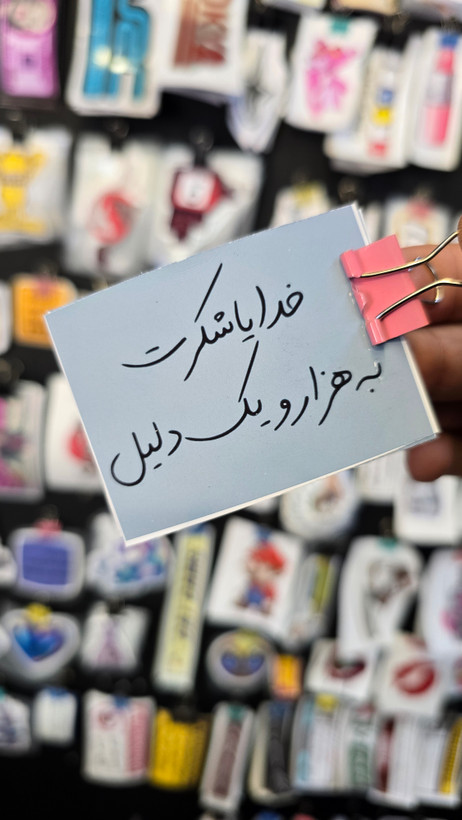 خدایا شکرت
به هزار و یک دلیل